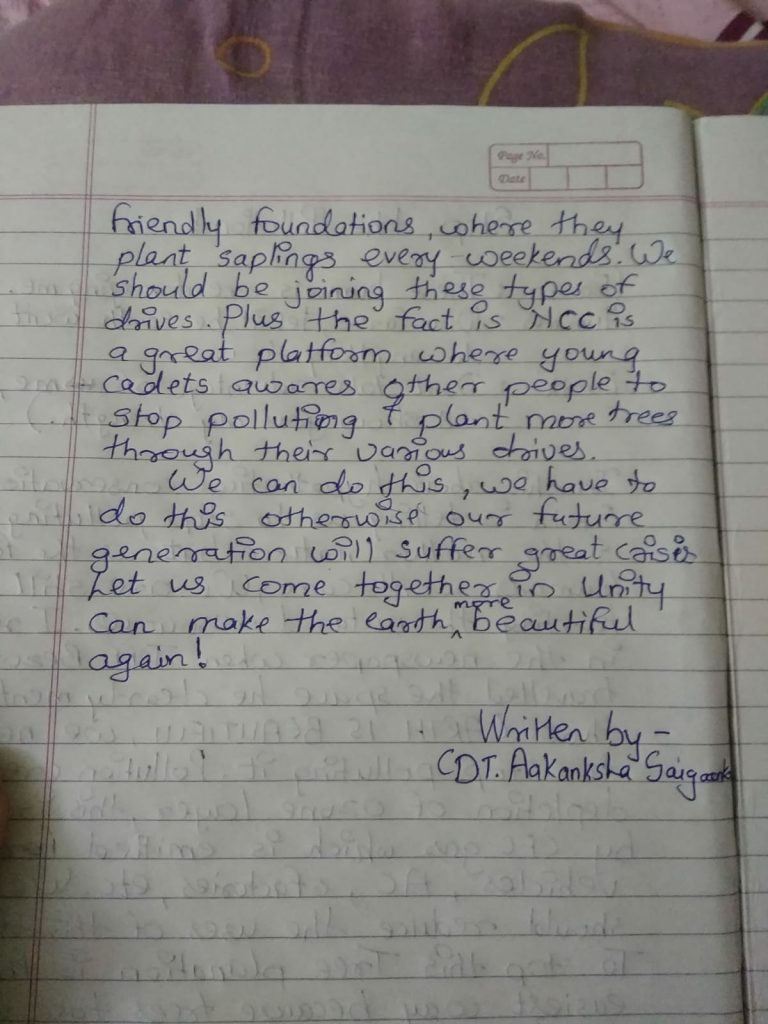 Page No.
Date
friendly foundations, where they
plant saplings every weekends. We
should be joining these types of
drives. Plus the fact is NCC is
a great platform where young
cadets awares other people to
stop polluting & plant more trees
through their various drives.
We can do this, we have to
do this otherwise our future
generation will suffer great crisis
Let us come together in Unity
can make the earth more beautiful
again!
Written by -
CDT. Aakanksha